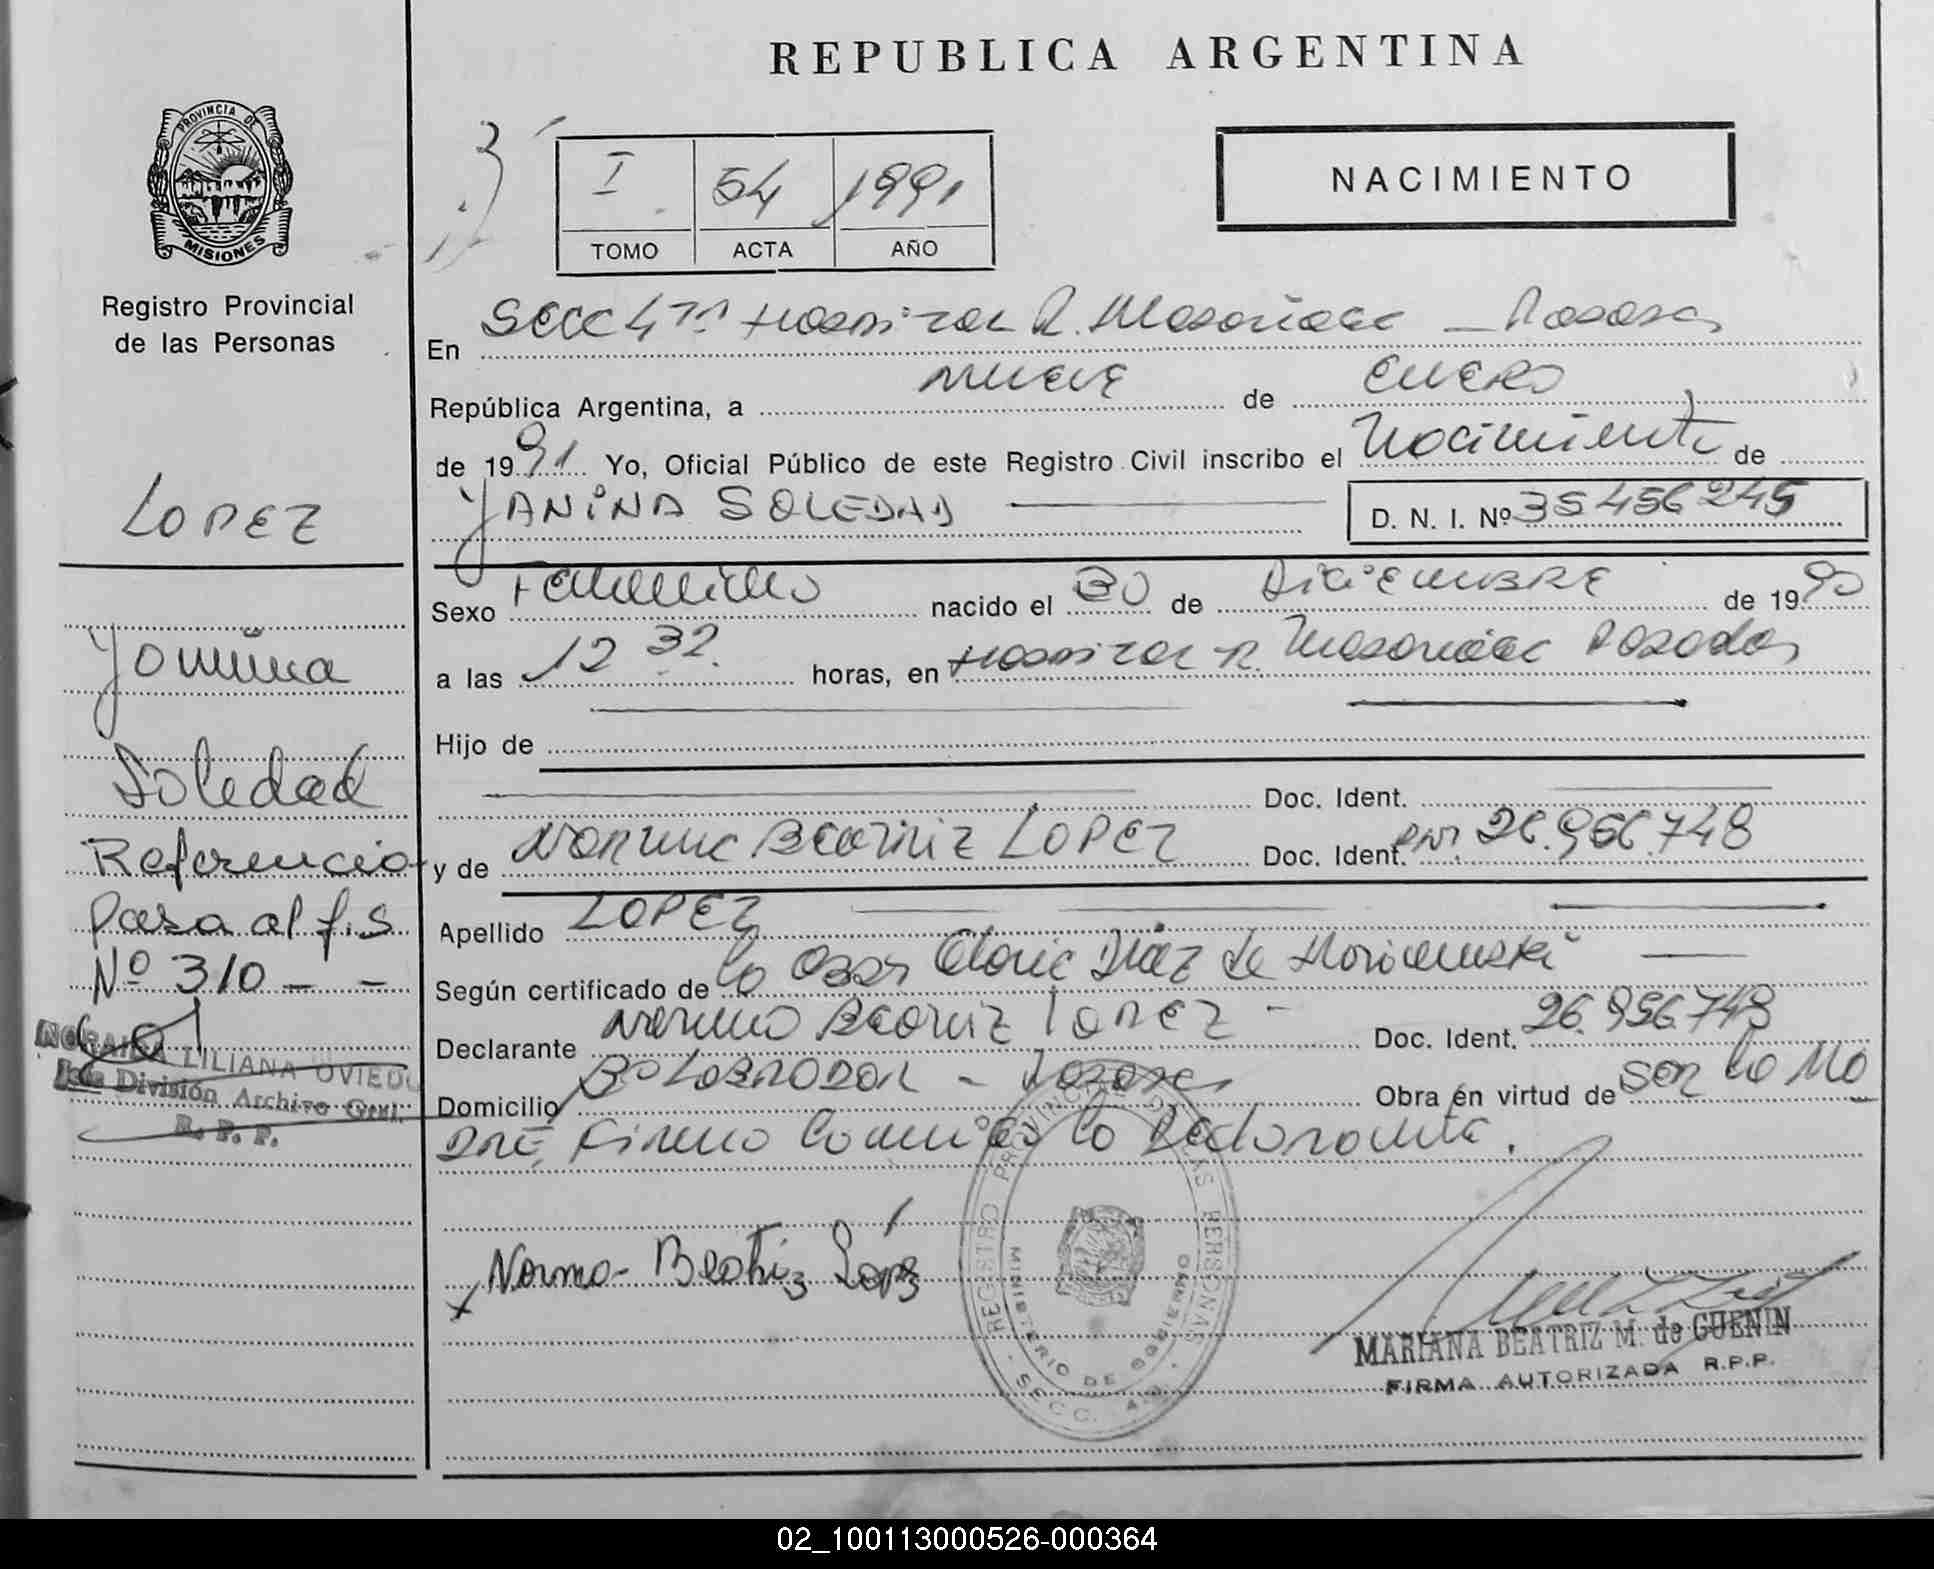 REPUBLICA ARGENTINA
PROVINCIA DE
MISIONES
Registro Provincial
de las Personas
I 54 1991
TOMO ACTA AÑO
NACIMIENTO
En Secc 4ta Hospital R. Madariaga - Posadas
República Argentina, a nueve de enero
de 1991 Yo, Oficial Público de este Registro Civil inscribo el Nacimiento de
YANINA SOLEDAD
D. N. I. Nº 35456245
LOPEZ
Sexo Femenino nacido el 30 de Diciembre de 1990
a las 12 32 horas, en Hospital R. Madariaga Posadas
Hijo de
Doc. Ident.
y de Norma Beatriz LOPEZ Doc. Ident. DNI. 26.956.748
Apellido LOPEZ
Según certificado de la Obst Gloria Díaz de
Declarante Norma Beatriz LOPEZ - Doc. Ident. 26.956.748
Domicilio Bº - Posadas Obra en virtud de ser la Ma
dre, Firma la Declarante.
Yanina
Soledad
Referencia
Pasa al f.s
Nº 310 - -
NORAIDA LILIANA OVIEDO
Jefe División Archivo Gral.
R. P. P.
Norma Beatriz López
REGISTRO PROVINCIAL DE LAS PERSONAS
MINISTERIO DE GOBIERNO
SECC. 4ª
MARIANA BEATRIZ M. de GUENIN
FIRMA AUTORIZADA R.P.P.
02_100113000526-000364